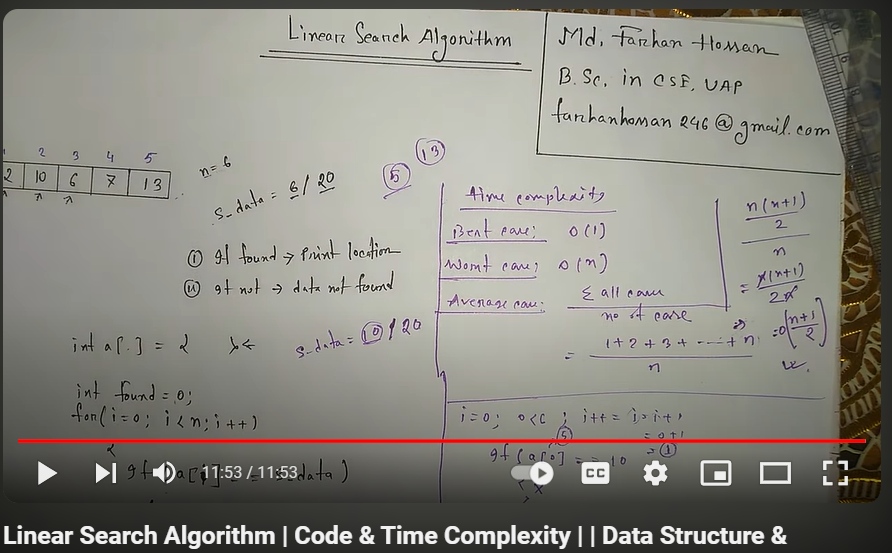 Linear Search Algorithm
Md. Farhan Hossan
B.Sc. in CSE, UAP
farhanhossan246@gmail.com
2 3 4 5
2 10 6 7 13
n=6
s_data = 6/20
5
13
i If found → Print location
ii If not → data not found
s_data = 10/20
int a[.] = { }
int found = 0;
for(i=0; i<n; i++)
{
Time complexity
Best case: O(1)
Worst case: O(n)
Average case: Σ all case
no of case
= 1+2+3+ ---- + n
n
n(n+1)
2
n
= n(n+1)
2n
=O(n+1/2)
i=0; 0<6; i++ = i=i+1
= 0+1
= 1
5
If (a[0] == 10
11:53 / 11:53
CC
Linear Search Algorithm | Code & Time Complexity | | Data Structure &